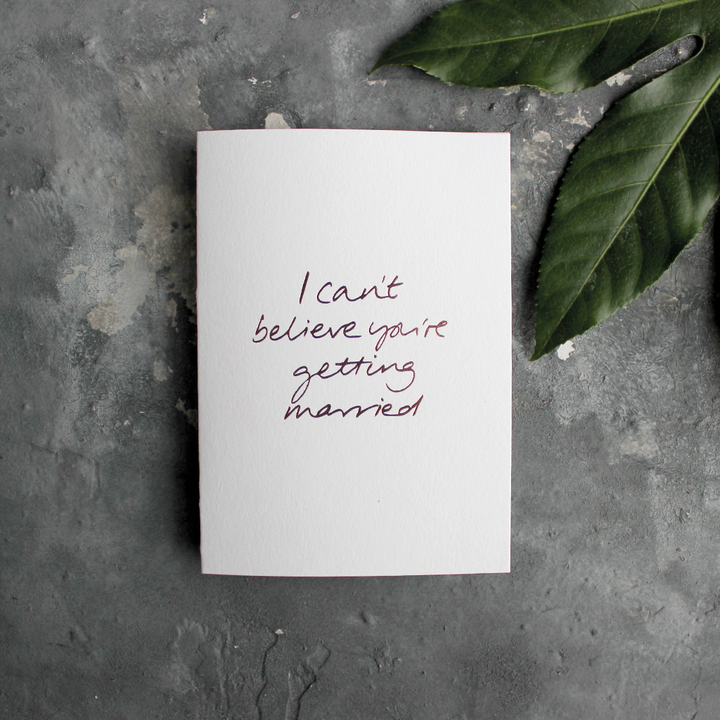 I can't
believe you're
getting
married